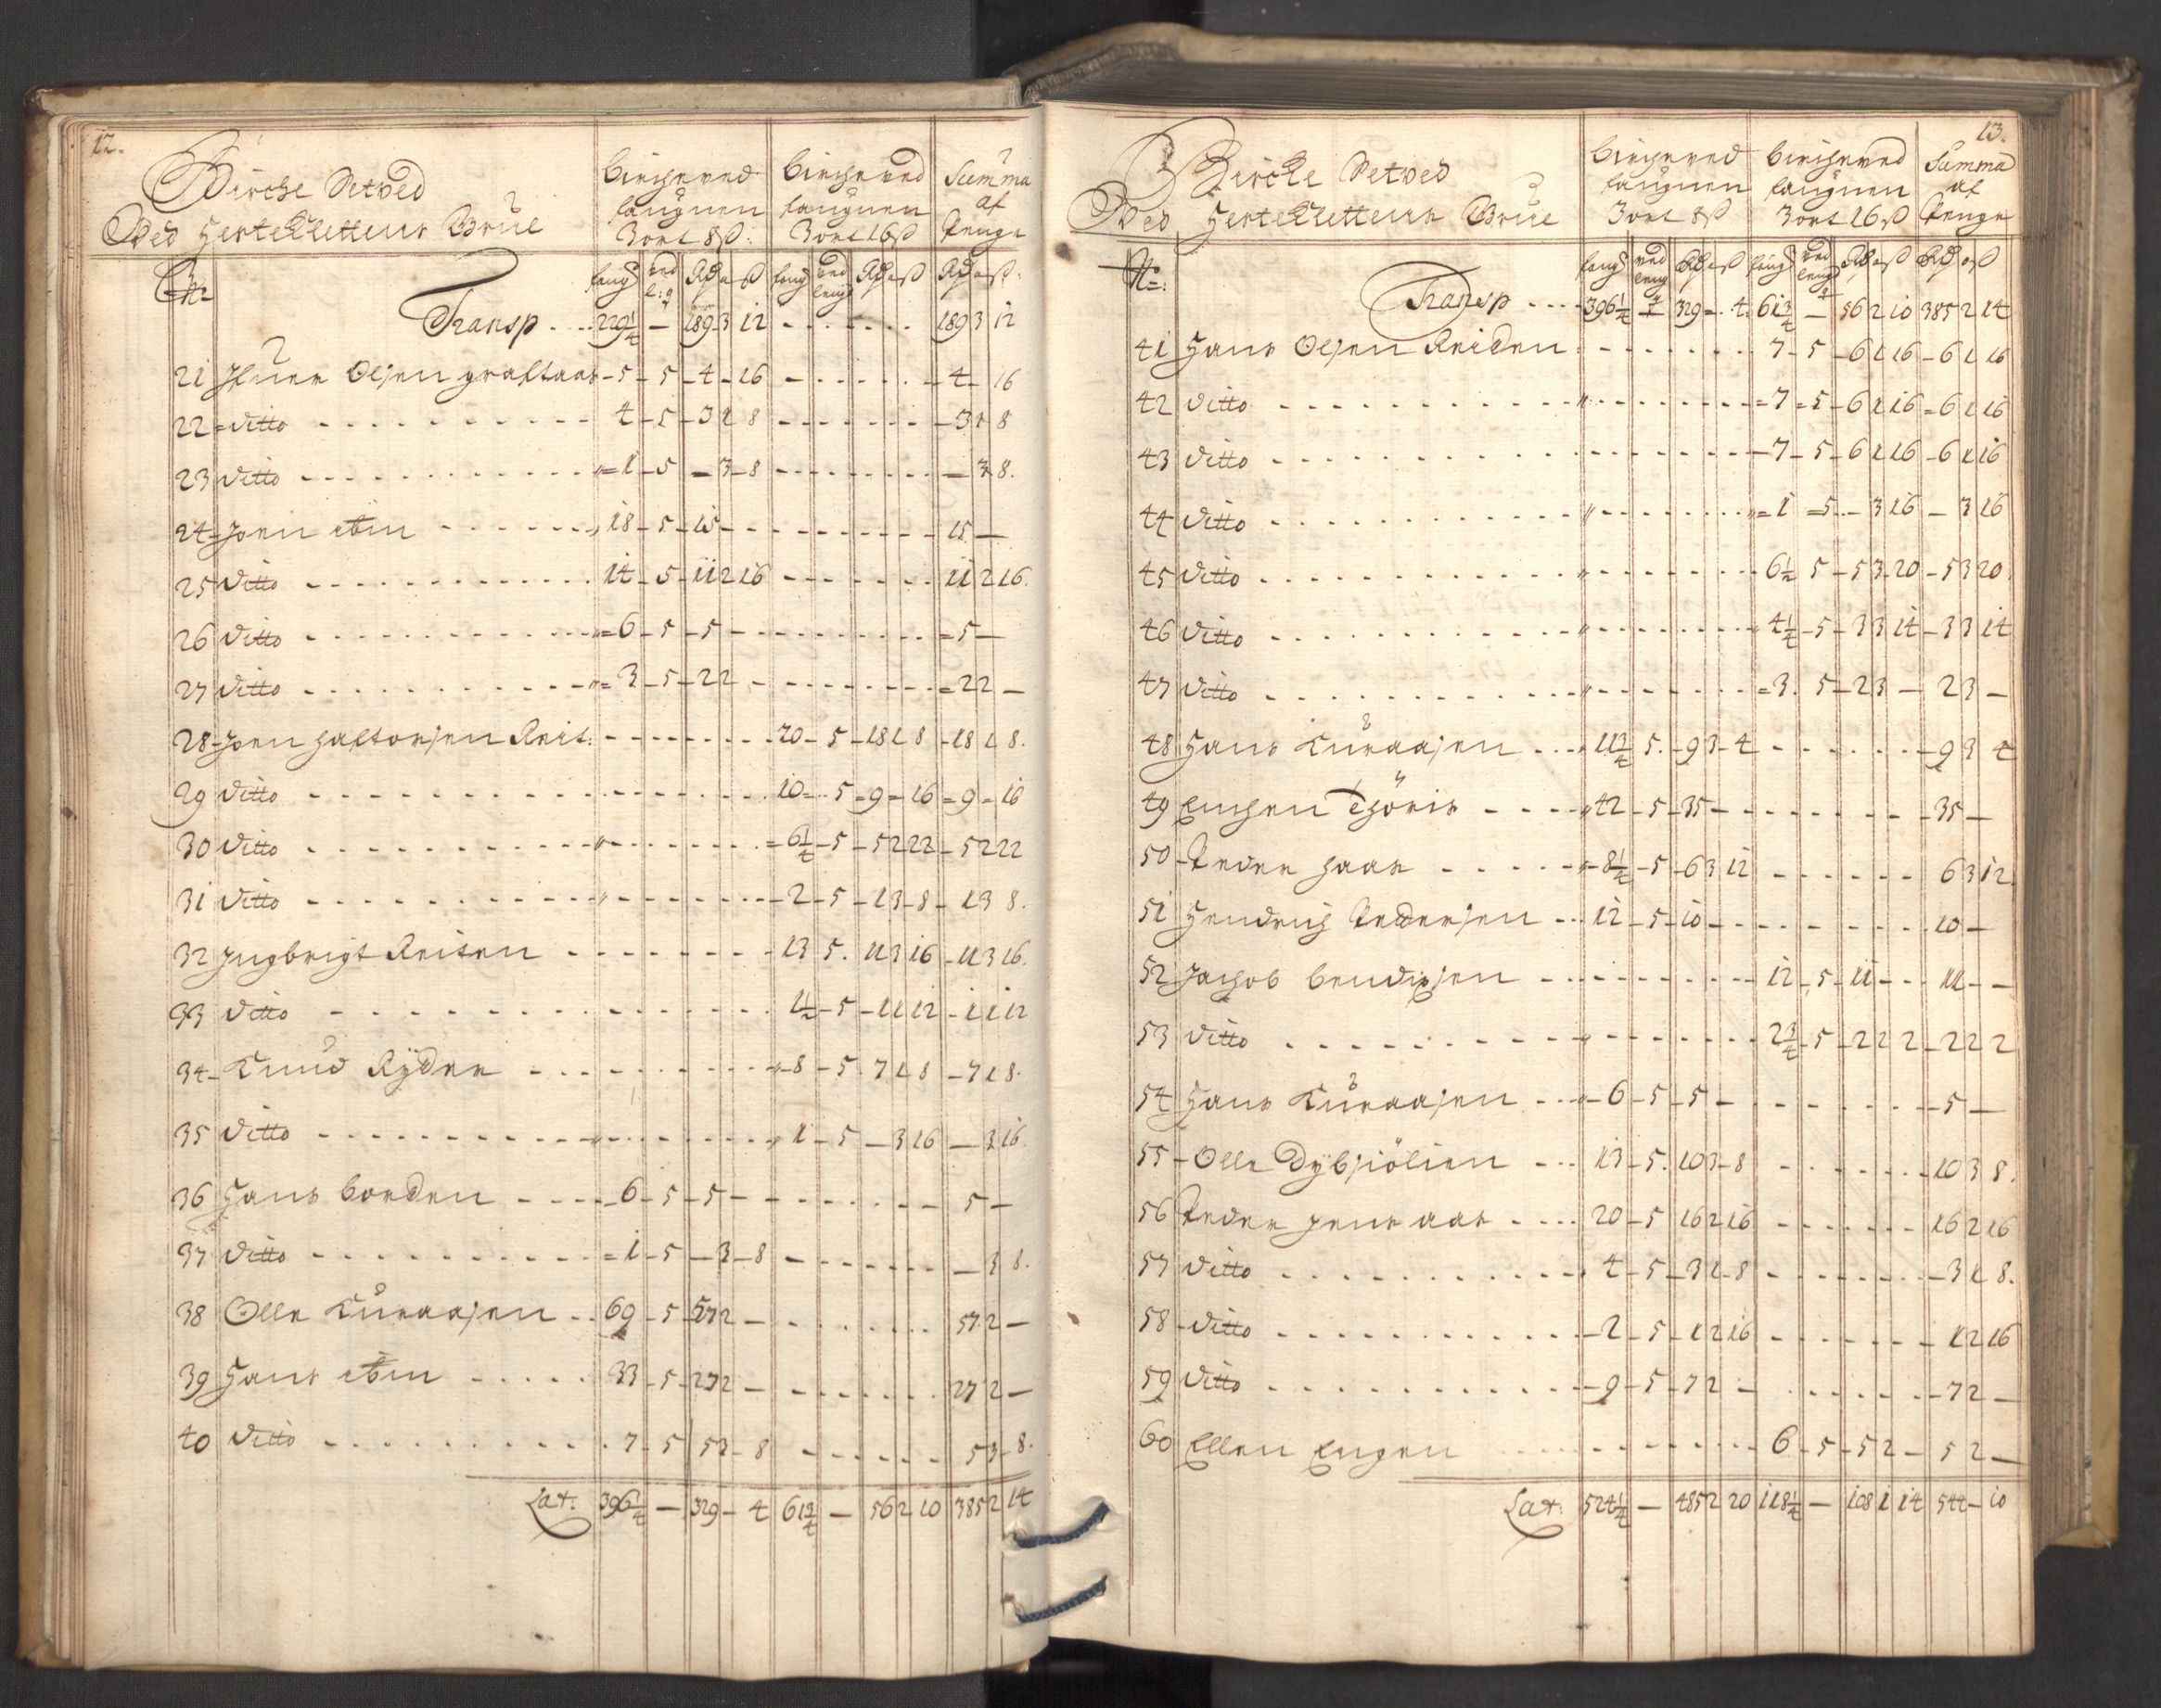 12.
Birche Setved
Ved Hesteklettens Brue
birche ved faugnen 3 ort 8 ß:
birche ved faugnen 3 ort 16 ß
Summa af Penge
No
faug ved l:g Rd o ß faug ved leng Rd o ß Rd o ß
Transp - - 229 1/4 — 189 3 12 - - - 189 3 12
21 Olsen graftaas - 5 - 5 - 4 - 16 - - - 4 - 16
22 ditto - - - 4 - 5 - 3 1 8 - - - 3 1 8
23 ditto - - - 1 - 5 — 3 - 8 - - - — 3 8.
24 Joen ibm - - - 18 - 5 - 15 - - - 15 —
25 ditto - - - 14 - 5 - 11 2 16 - - - 11 2 16.
26 ditto - - - 6 - 5 - 5 - - - 5 —
27 ditto - - - 3 - 5 - 2 2 - - - 2 2 —
28 Joen Halvorsen Reit. - - - 20 - 5 - 18 1 8 - 18 1 8.
29 ditto - - - 10 - 5 - 9 - 16 - 9 - 16
30 ditto - - - 6 1/4 - 5 - 5 2 22 - 5 2 22
31 ditto - - - 2 - 5 - 1 3 - 8 - 1 3 8.
32 Ingbrigt Reiten - - - 13 5. 11 3 16 - 11 3 16.
33 ditto - - - 1 1/2 - 5 - 1 1 12 - 1 1 12
34 Knud Rÿden - - - 8 - 5 7 1 8 - 7 1 8.
35 ditto - - - 1 - 5 — 3 16 — 3 16.
36 Hans borden - - - 6 - 5 - 5 - - - 5 —
37 ditto - - - 1 - 5 — 3 - 8 - - - — 3 8.
38 Olle Kuraasen - - 69 - 5 57 2 — - - - 57 2 —
39 Hans ibm - - - 33 - 5 - 27 2 — - - - 27 2 —
40 ditto - - - 7 - 5 5 3 - 8 - - - 5 3 - 8.
Lat: 396 1/4 — 329 - 4 61 3/4 — 56 2 10 385 2 14
13.
Bircke Setved
Ved Hesteklettens Brue
birche ved faugnen 3 ort 8 ß
birche ved faugnen 3 ort 16 ß
Summa af Penge
No:
faug ved leng Rd o ß faug ved leng Rd o ß Rd o ß
Transp - - - 396 1/4 329 - 4. 61 3/4 — 56 2 10 385 2 14
41 Hans Olsen Reiden - - - 7 - 5 - 6 1 16 - 6 1 16
42 ditto - - - 7 - 5 - 6 1 16 - 6 1 16
43 ditto - - - 7 - 5 - 6 1 16 - 6 1 16
44 ditto - - - 1 - 5 - - 3 16 — 3 16
45 ditto - - - 6 1/2 5 - 5 3 20 - 5 3 20.
46 ditto - - - 4 1/4 - 5 - 3 3 14 - 3 3 14
47 ditto - - - 3. 5 - 2 3 — 2 3 —
48 Hans Kuraasen - - - 11 3/4 5. - 9 3 - 4 - - - 9 3 4
49 Thöris - - - 42 - 5 - 35 - - - 35 —
50 Peder haas - - - 8 1/4 - 5 - 6 3 12 - - - 6 3 12
51 Hendrich Pedersen - - 12 - 5 - 10 - - - 10 —
52 Jachob bendixsen - - - 12 - 5 - 11 - - - 11 - —
53 ditto - - - 2 3/4 - 5 - 2 2 2 - 2 2 2
54 Hans Kuraasen - - - 6 - 5 - 5 - - - 5 —
55 Olle Dÿbsiölien - - - 13 - 5. 10 3 - 8 - - - 10 3 8.
56 Peder Jens aas - - - 20 - 5 16 2 16 - - - 16 2 16
57 ditto - - - 4 - 5 - 3 1 - 8 - - - 3 1 8.
58 ditto - - - 2 - 5 - 1 2 16 - - - 1 2 16
59 ditto - - - 9 - 5 - 7 2 — - - - 7 2 —
60 Ellen Engen - - - 6 - 5 - 5 2 — 5 2 —
Lat: 524 1/4 — 435 2 20 118 1/4 — 108 1 14 544 - 10